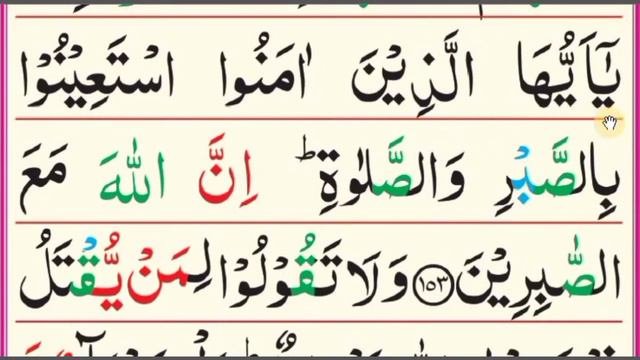 يٰٓاَيُّهَا الَّذِيْنَ اٰمَنُوا اسْتَعِيْنُوْا
بِالصَّبْرِ وَالصَّلٰوةِ ؕ اِنَّ اللّٰهَ مَعَ
الصّٰبِرِيْنَ ﴿۱۵۳﴾ وَلَا تَقُوْلُوْا لِمَنْ يُّقْتَلُ